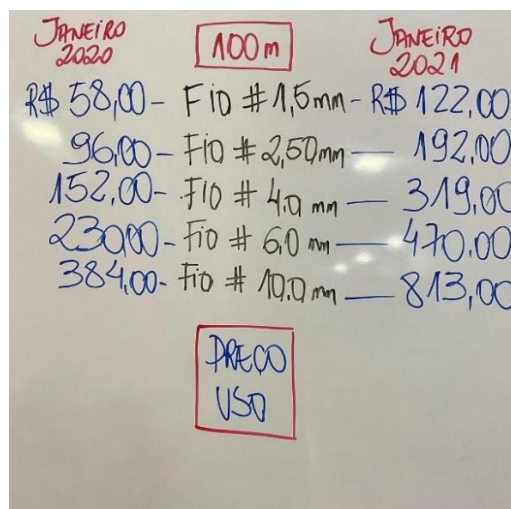 JANEIRO 2020
100m
JANEIRO 2021
R$ 58,00 - FIO # 1,5mm - R$ 122,00
96,00 - FIO # 2,50mm - 192,00
152,00 - FIO # 4.0 mm - 319,00
230,00 - FIO # 6,0 mm - 470.00
384,00 - FIO # 10.0 mm - 813,00
PREÇO
USO